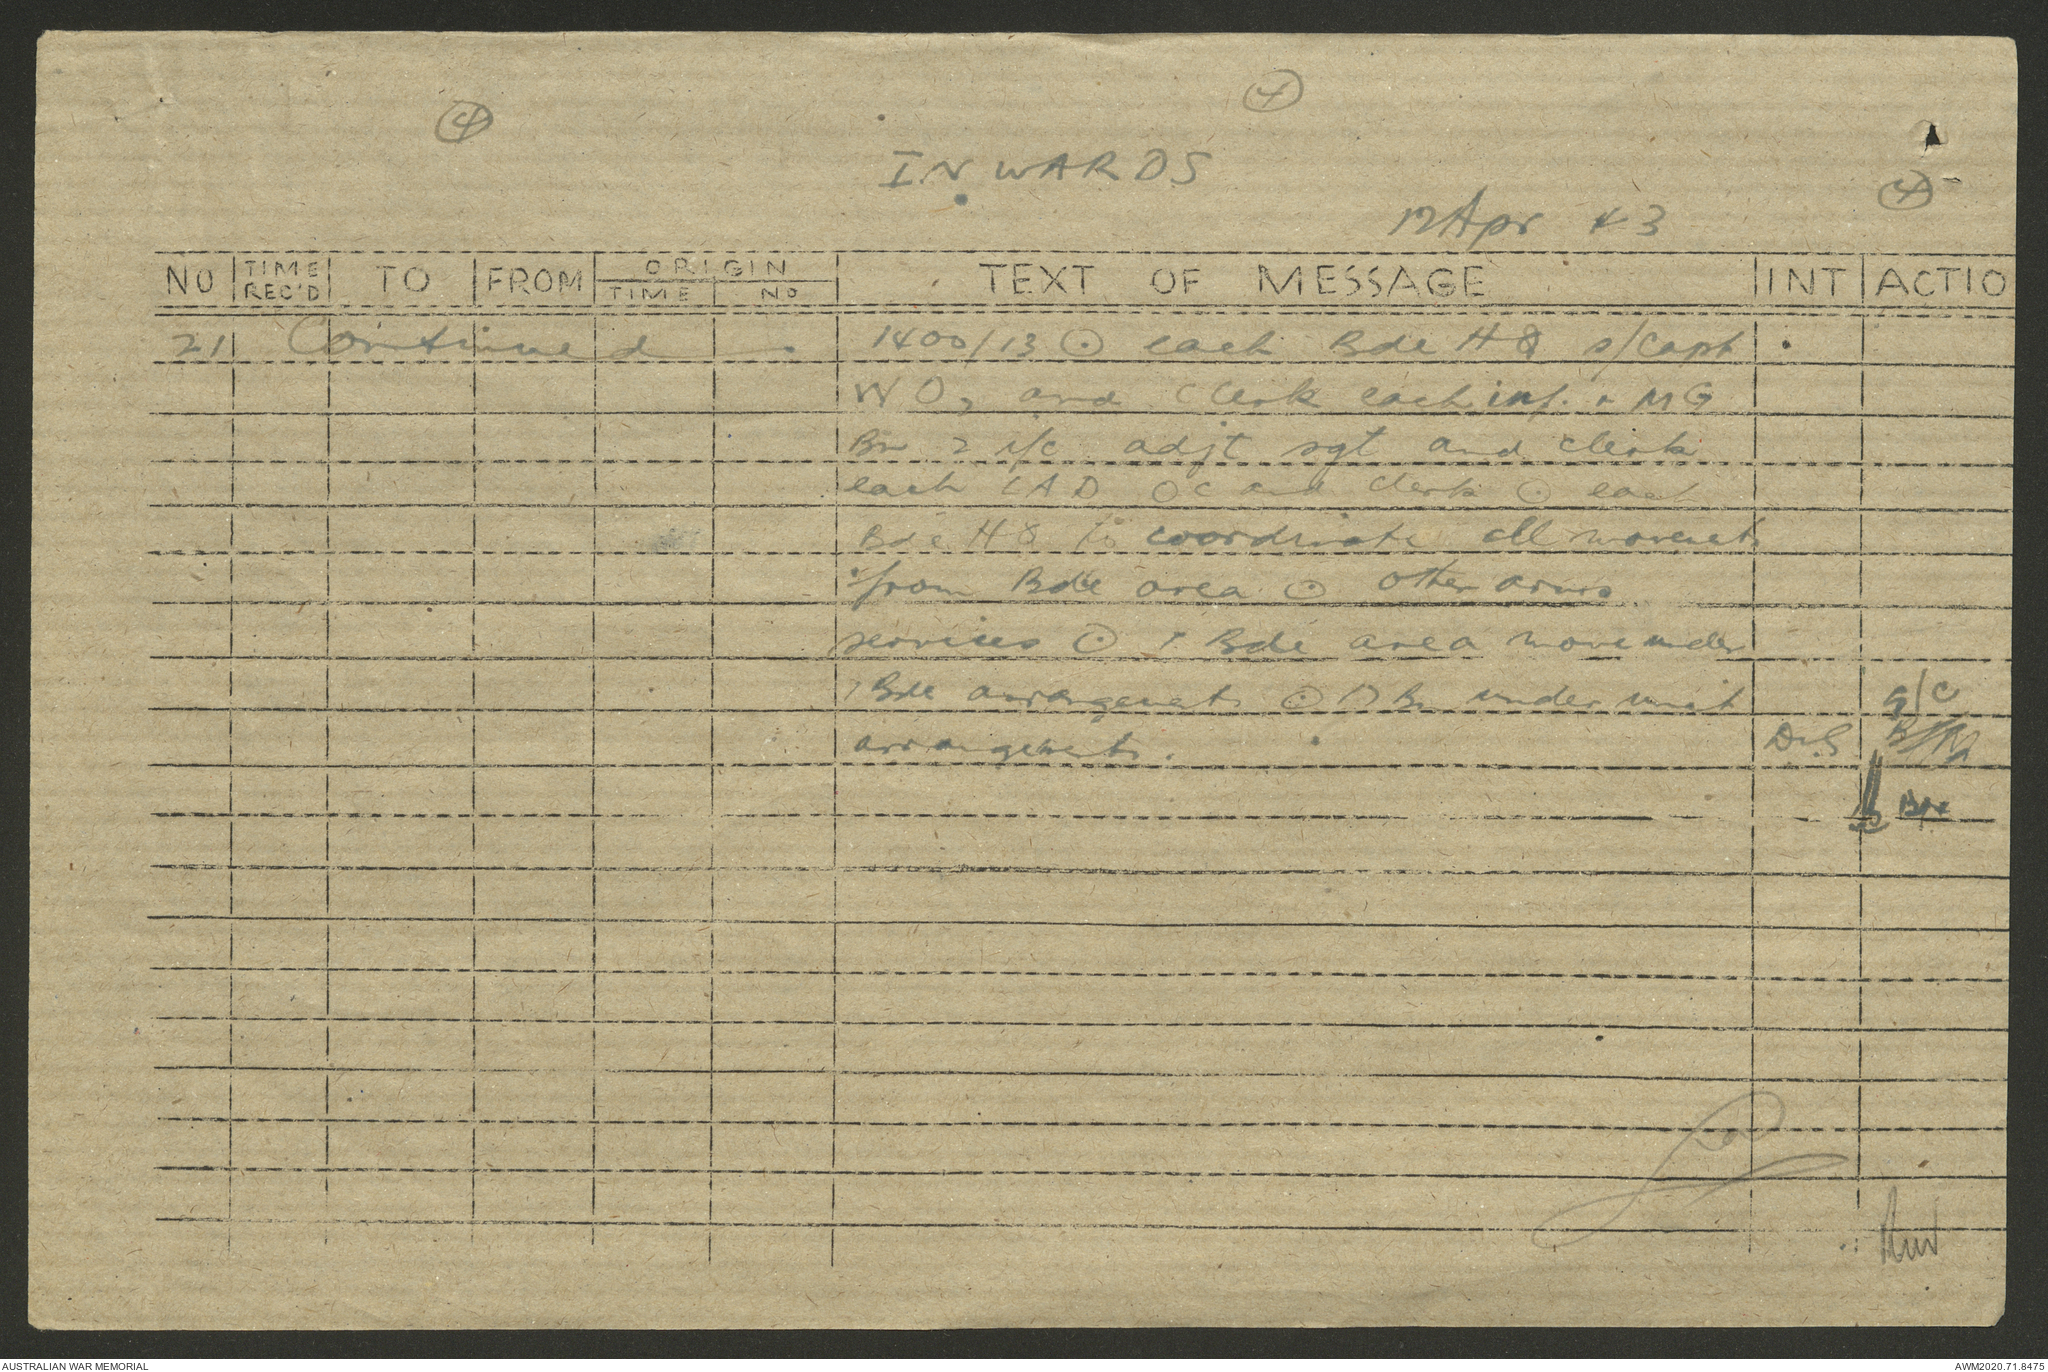 4
4
INWARDS
4
12 Apr 43
NO TIME REC'D TO FROM ORIGIN TIME NO TEXT OF MESSAGE INT ACTIO
21 Continued 1400/13 ⊙ each Bde HQ s/capt
WO, and clerk each inf. + MG
Bn 2 i/c adjt sgt and clerk
each LAD OC and clerk ⊙ each
Bde HQ to coordinate all movements
from Bde area ⊙ other arms
services ⊙ 7 Bde area move under
7 Bde arrangements ⊙ Bn under unit
arrangements. DvS
G/C
Bde
AUSTRALIAN WAR MEMORIAL
AWM2020.71.8475